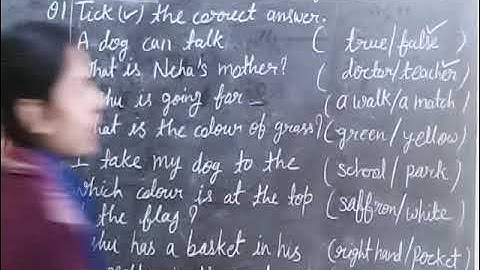 Q1 Tick (✓) the correct answer.
A dog can talk (true/false✓)
What is Neha's mother? (doctor/teacher✓)
is going for _ (a walk/a match)
what is the colour of grass? (green/yellow)
I take my dog to the (school/park)
which colour is at the top (saffron/white)
the flag?
has a basket in his (right hand/pocket)